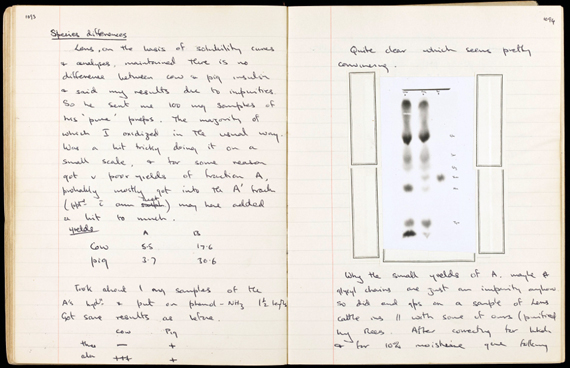 1093
Species differences
Lens, on the basis of solubility curves
& analyses, maintained there is no
difference between cow & pig insulin
& said my results due to impurities.
So he sent me 100 mg samples of
his 'pure' preps. The majority of
which I oxidized in the usual way.
Was a bit tricky doing it on a
small scale, & for some reason
got v poor yields of fraction A,
probably mostly got into the A' fract
(ppt. c amm ) may have added
a bit to much.
yields
A B
Cow 5.5 17.6
pig 3.7 30.6
Took about 1 mg samples of the
A's hydr. & put on phenol-NH3 1½
Got same results as before.
cow Pig
thre — +
ala +++ +
1094
Quite clear which seems pretty
convincing.
Why the small yields of A. maybe A
glycyl chains are just an impurity anyhow
so did end gps on a sample of Lens
cattle ins // with some of ours (purified
by Rees. After correcting for
& for 10% moisture gave following